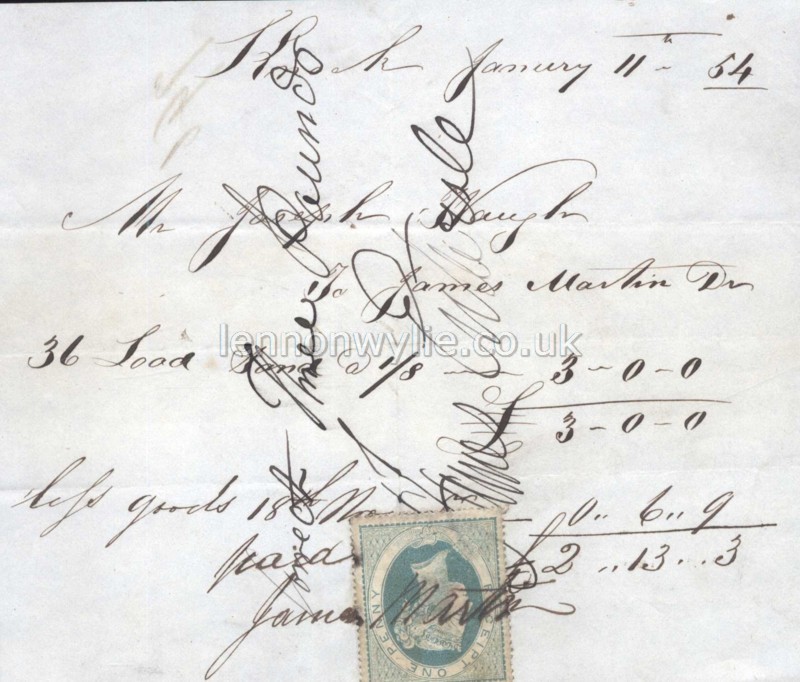 Janury 11th 54
Mr Joseph Haugh
To James Martin Dr
36 Load Sand @ 1/8 3-0-0
£ 3-0-0
less goods 18th Nov 0,, 6,, 9
paid £2 ,,13,, 3
James Martin
Three Pounds
RECEIPT ONE PENNY
lennonwylie.co.uk